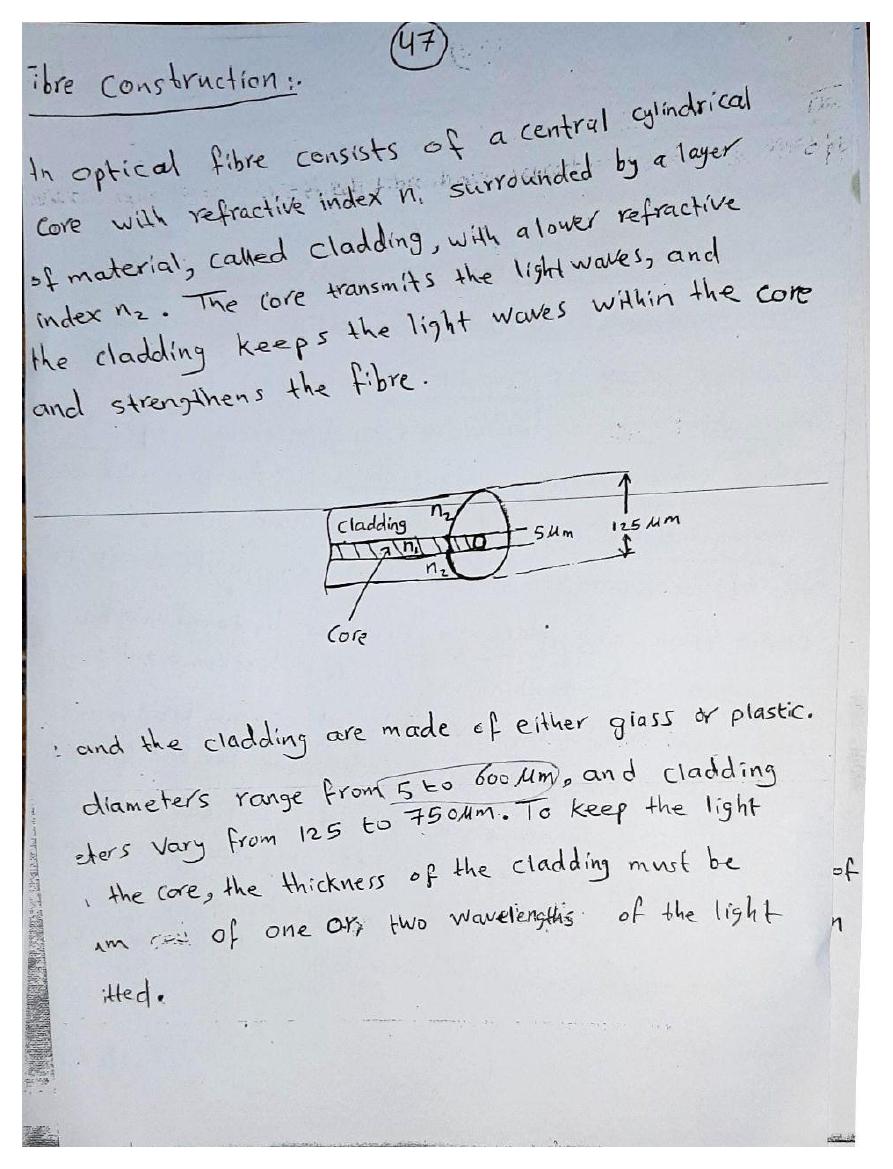 47
ibre Construction :.
In optical fibre consists of a central cylindrical
Core with refractive index n1 surrounded by a layer
of material, called cladding, with a lower refractive
index n2. The core transmits the light waves, and
the cladding keeps the light waves within the core
and strengthens the fibre.
Cladding n2
n1
5 µm
125 µm
n2
Core
and the cladding are made of either glass or plastic.
diameters range from 5 to 600 µm, and cladding
eters vary from 125 to 750µm. To keep the light
the core, the thickness of the cladding must be
of
um of one or two wavelengths of the light
n
itted.